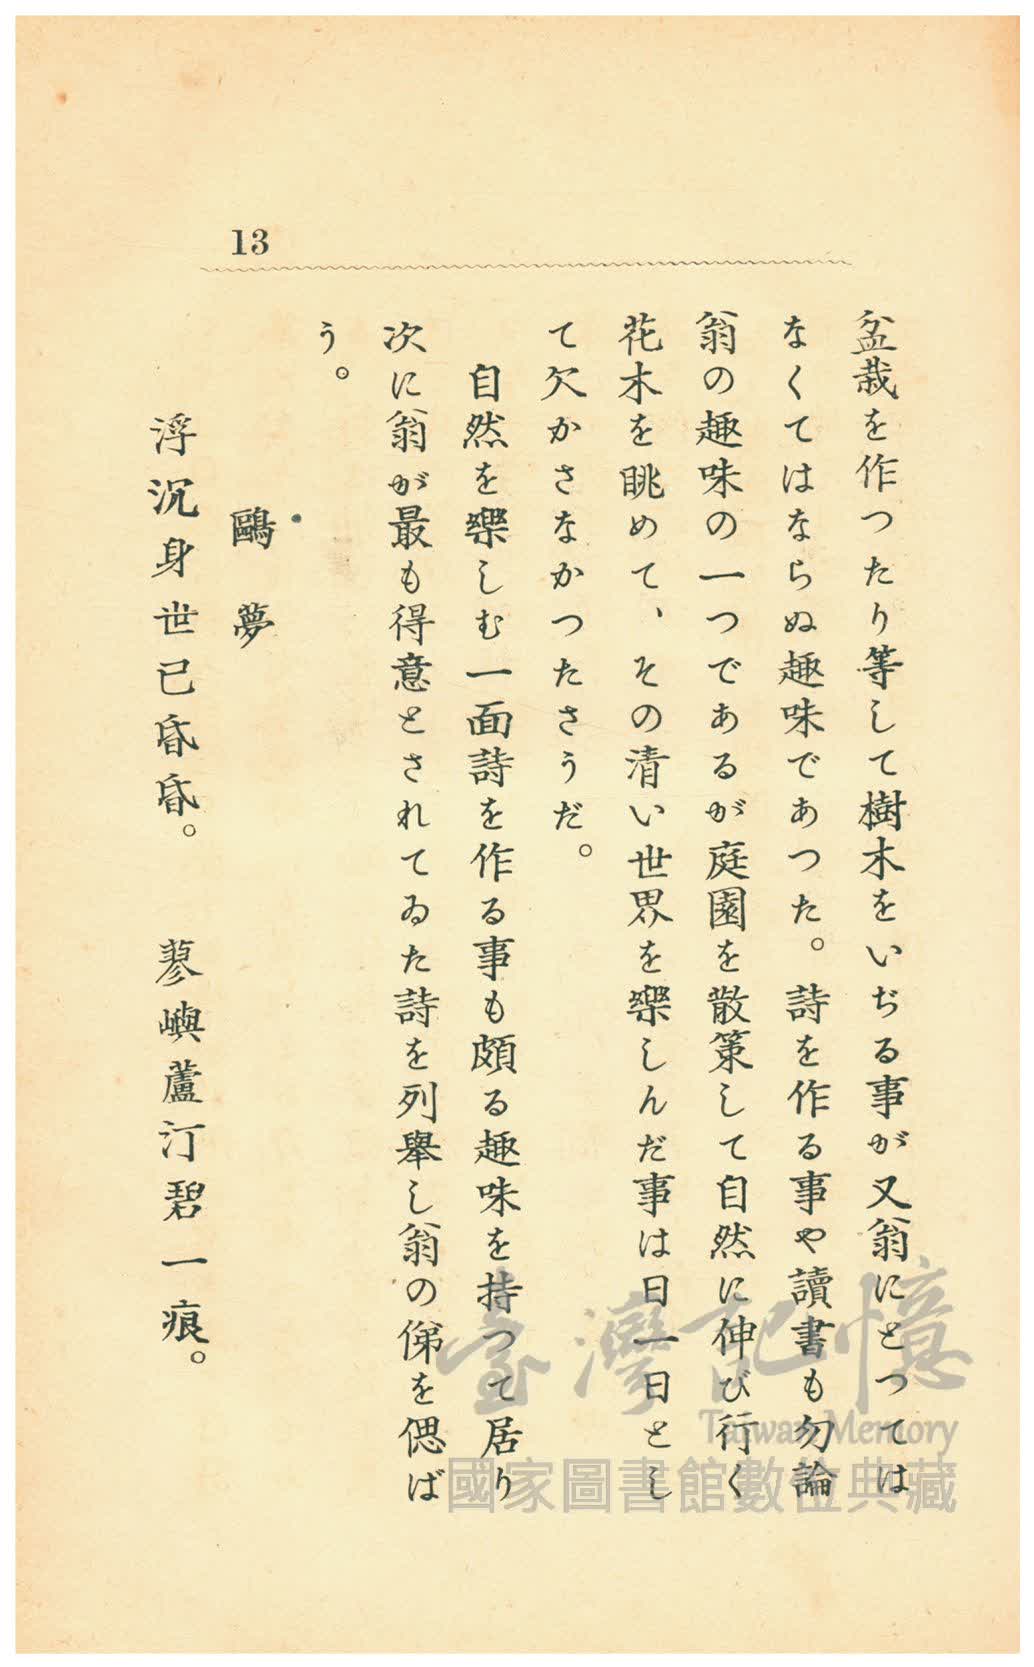 13
盆栽を作つたり等して樹木をいぢる事が又翁にとつては
なくてはならぬ趣味であつた。詩を作る事や讀書も勿論
翁の趣味の一つであるが庭園を散策して自然に伸び行く
花木を眺めて、その清い世界を樂しんだ事は日一日とし
て欠かさなかつたさうだ。
自然を樂しむ一面詩を作る事も頗る趣味を持つて居り
次に翁が最も得意とされてゐた詩を列舉し翁の俤を偲ば
う。
鷗夢
浮沉身世已昏昏。 蓼嶼蘆汀碧一痕。
臺灣記憶
Taiwan Memory
國家圖書館數位典藏